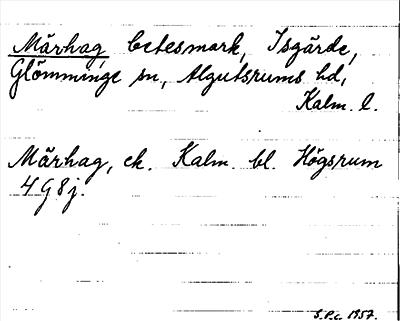 Märhag betesmark, Isgärde,
Glömminge sn, Algutsrums hd,
Kalm. l.
Märhag, ek. Kalm. bl. Högsrum
4 G 8 j.
S.P.C. 1957.